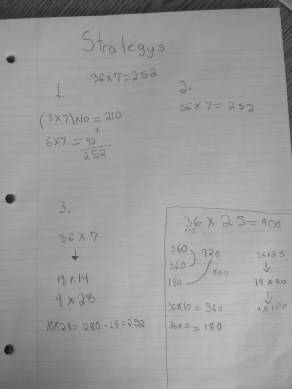 Strategys
36×7=252
1.
(3×7)×10=210
+
6×7=42
252
2.
36×7=252
3.
36×7
↓
18×14
9×28
10×28=280-28=252
36×25=900
×10
360
360
180
720
900
36×10=360
36×5=180
36×25
↓
18×50
↓
9×100